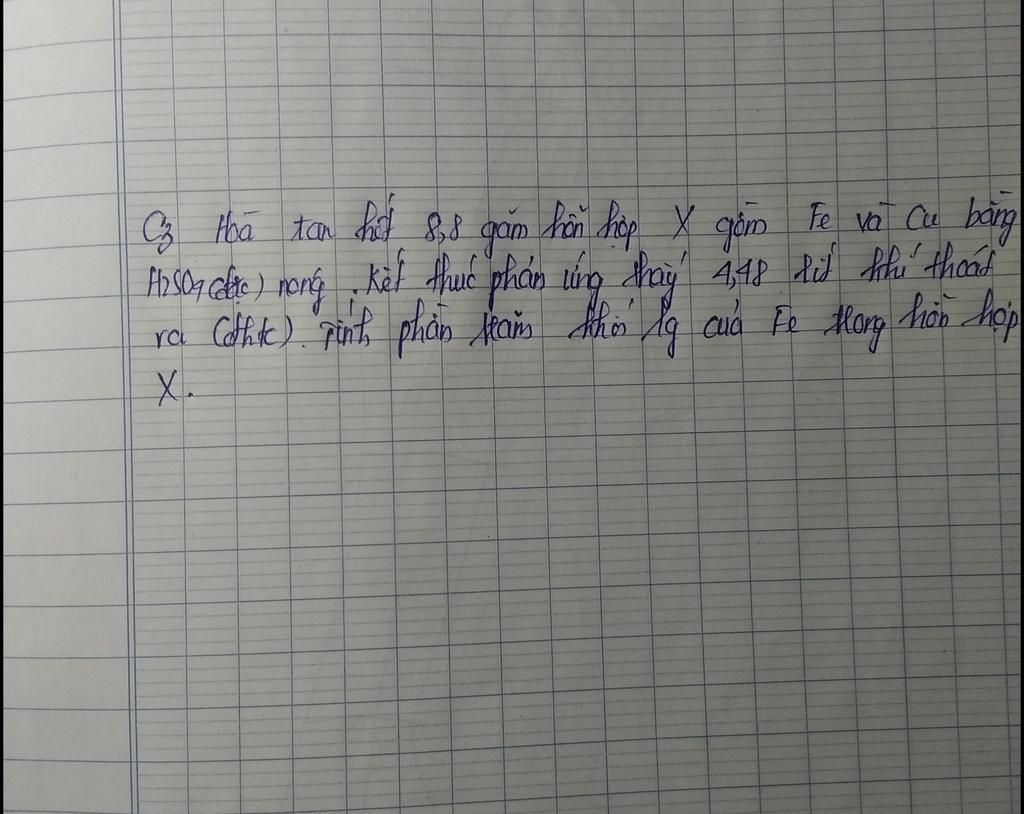 C3 Hoà tan hết 8,8 gam hỗn hợp X gồm Fe và Cu bằng
H2SO4 (đặc) nóng. Kết thúc phản ứng thấy 4,48 lít khí thoát
ra (đktc). Tính phần trăm khối lg của Fe trong hỗn hợp
X.